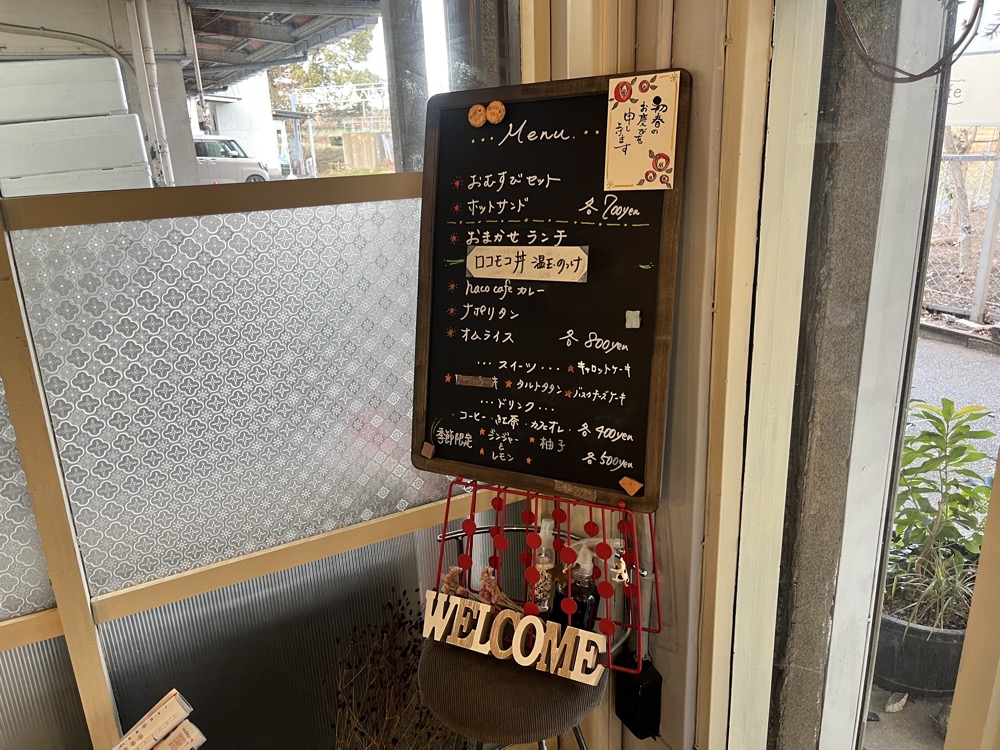 ...Menu...
初春の
お慶びを
申し
上げます
おむすびセット
ホットサンド 各700yen
おまかせ ランチ
ロコモコ丼 温玉のっけ
haco cafe カレー
ナポリタン
オムライス 各800yen
...スイーツ... ★キャロットケーキ
キ ★タルトタタン ★バスクチーズケーキ
...ドリンク...
・コーヒー・紅茶・カフェオレ・各400yen
季節限定 ★ジンジャー ★柚子
&
レモン 各500yen
WELCOME